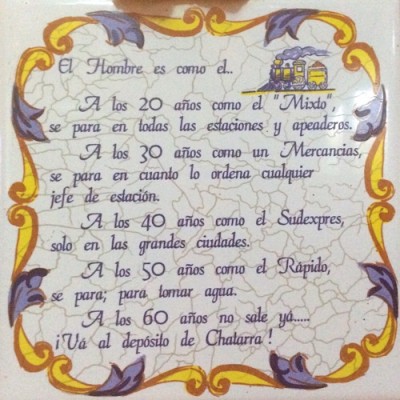 El Hombre es como el..
A los 20 años como el "Mixto",
se para en todas las estaciones y apeaderos.
A los 30 años como un Mercancias,
se para en cuanto lo ordena cualquier
jefe de estación.
A los 40 años como el Sudexpres,
solo en las grandes ciudades.
A los 50 años como el Rápido,
se para; para tomar agua.
A los 60 años no sale yá.....
¡Vá al depósito de Chatarra!